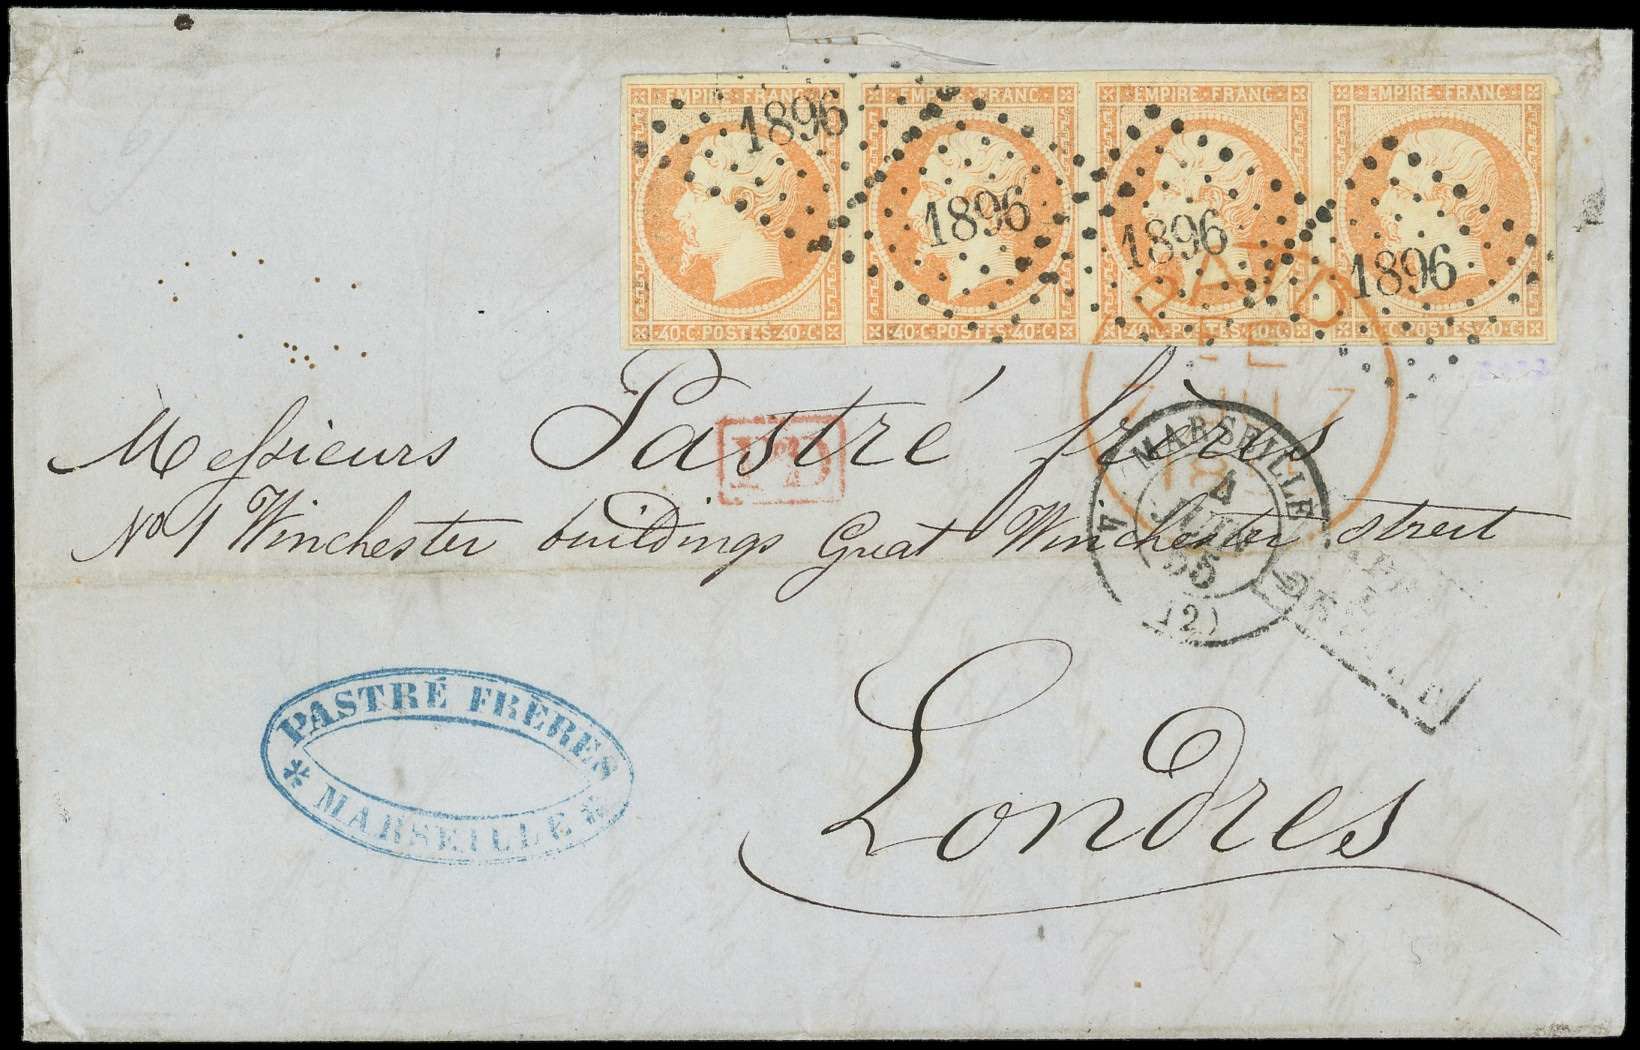 EMPIRE FRANC EMPIRE FRANC EMPIRE FRANC EMPIRE FRANC
1896 1896 1896 1896
40·C·POSTES·40·C 40·C·POSTES·40·C 40·C·POSTES·40·C 40·C·POSTES·40·C
PAID
7 7
Messieurs Pastré frères
PD
MARSEILLE
4
JUIN
55
(2)
No 1 Winchester buildings Great Winchester street
Londres
PASTRÉ FRÈRES
MARSEILLE